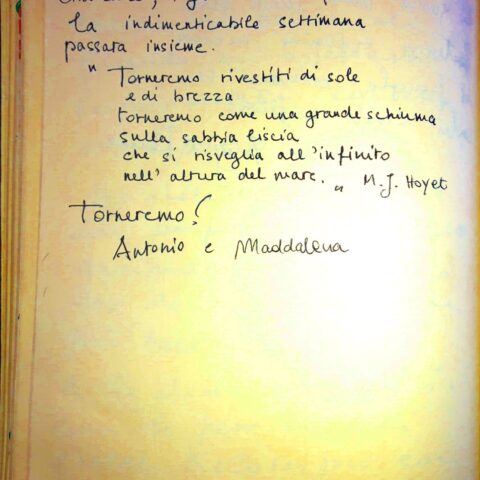 la indimenticabile settimana
passata insieme.
" Torneremo rivestiti di sole
e di brezza
torneremo come una grande schiuma
sulla sabbia liscia
che si risveglia all'infinito
nell' altura del mare. " M. J. Hoyet
Torneremo!
Antonio e Maddalena